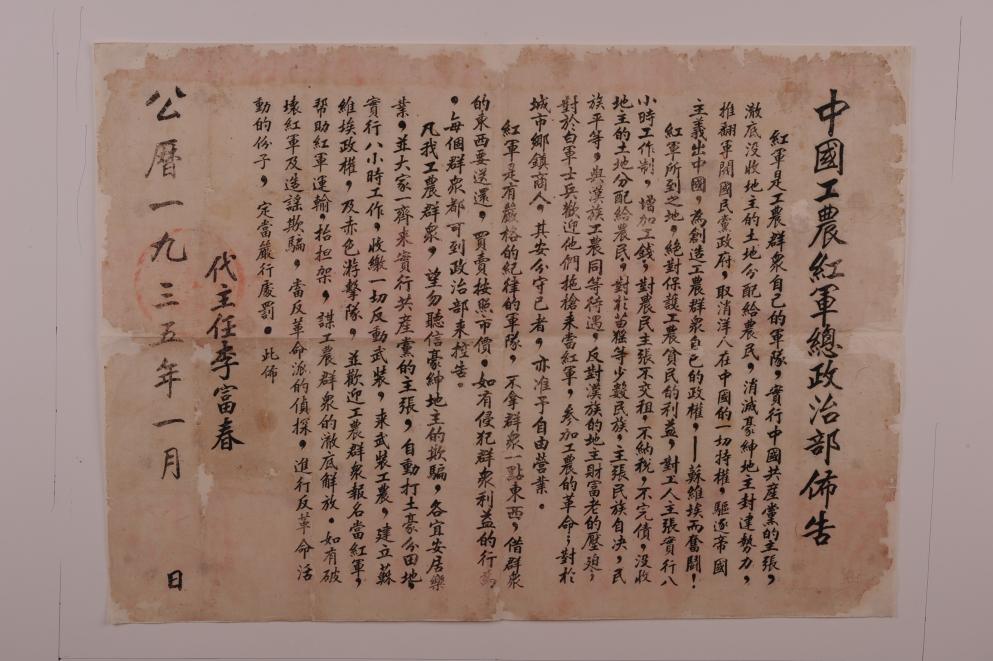 中國工農紅軍總政治部佈告
紅軍是工農群衆自己的軍隊，實行中國共産黨的主張，
澈底没收地主的土地分配給農民，消滅豪紳地主封建勢力，
推翻軍閥國民黨政府，取消洋人在中國的一切持權，驅逐帝國
主義出中國，為創造工農群衆自己的政權，——蘇維埃而奮鬪！
紅軍所到之地，絕對保護工農貧民的利益，對工人主張實行八
小時工作制，增加工錢，對農民主張不交租，不納稅，不完債，没收
地主的土地分配給農民，對於苗猺等少數民族，主張民族自决，民
族平等，與漢族工農同等待遇，反對漢族的地主財富老的壓迫，
對於白軍士兵歡迎他們拖槍来當紅軍，參加工農的革命；對於
城市鄉鎮商人，其安分守己者，亦准予自由營業。
紅軍是有嚴格的紀律的軍隊，不拿群衆一點東西，借群衆
的東西要送還，買賣按照市價，如有侵犯群衆利益的行為
，每個群衆都可到政治部来控告。
凡我工農群衆，望勿聽信豪紳地主的欺騙，各宜安居樂
業，並大家一齊来實行共産黨的主張，自動打土豪分田地，
實行八小時工作，收繳一切反動武裝，来武裝工農，建立蘇
維埃政權，及赤色游擊隊，並歡迎工農群衆報名當紅軍，
帮助紅軍運輸，抬担架，謀工農群衆的澈底解放。如有破
壞紅軍及造謡欺騙，當反革命派的偵探，進行反革命活
動的份子，定當嚴行處罰。此佈
代主任李富春
公曆一九三五年一月 日